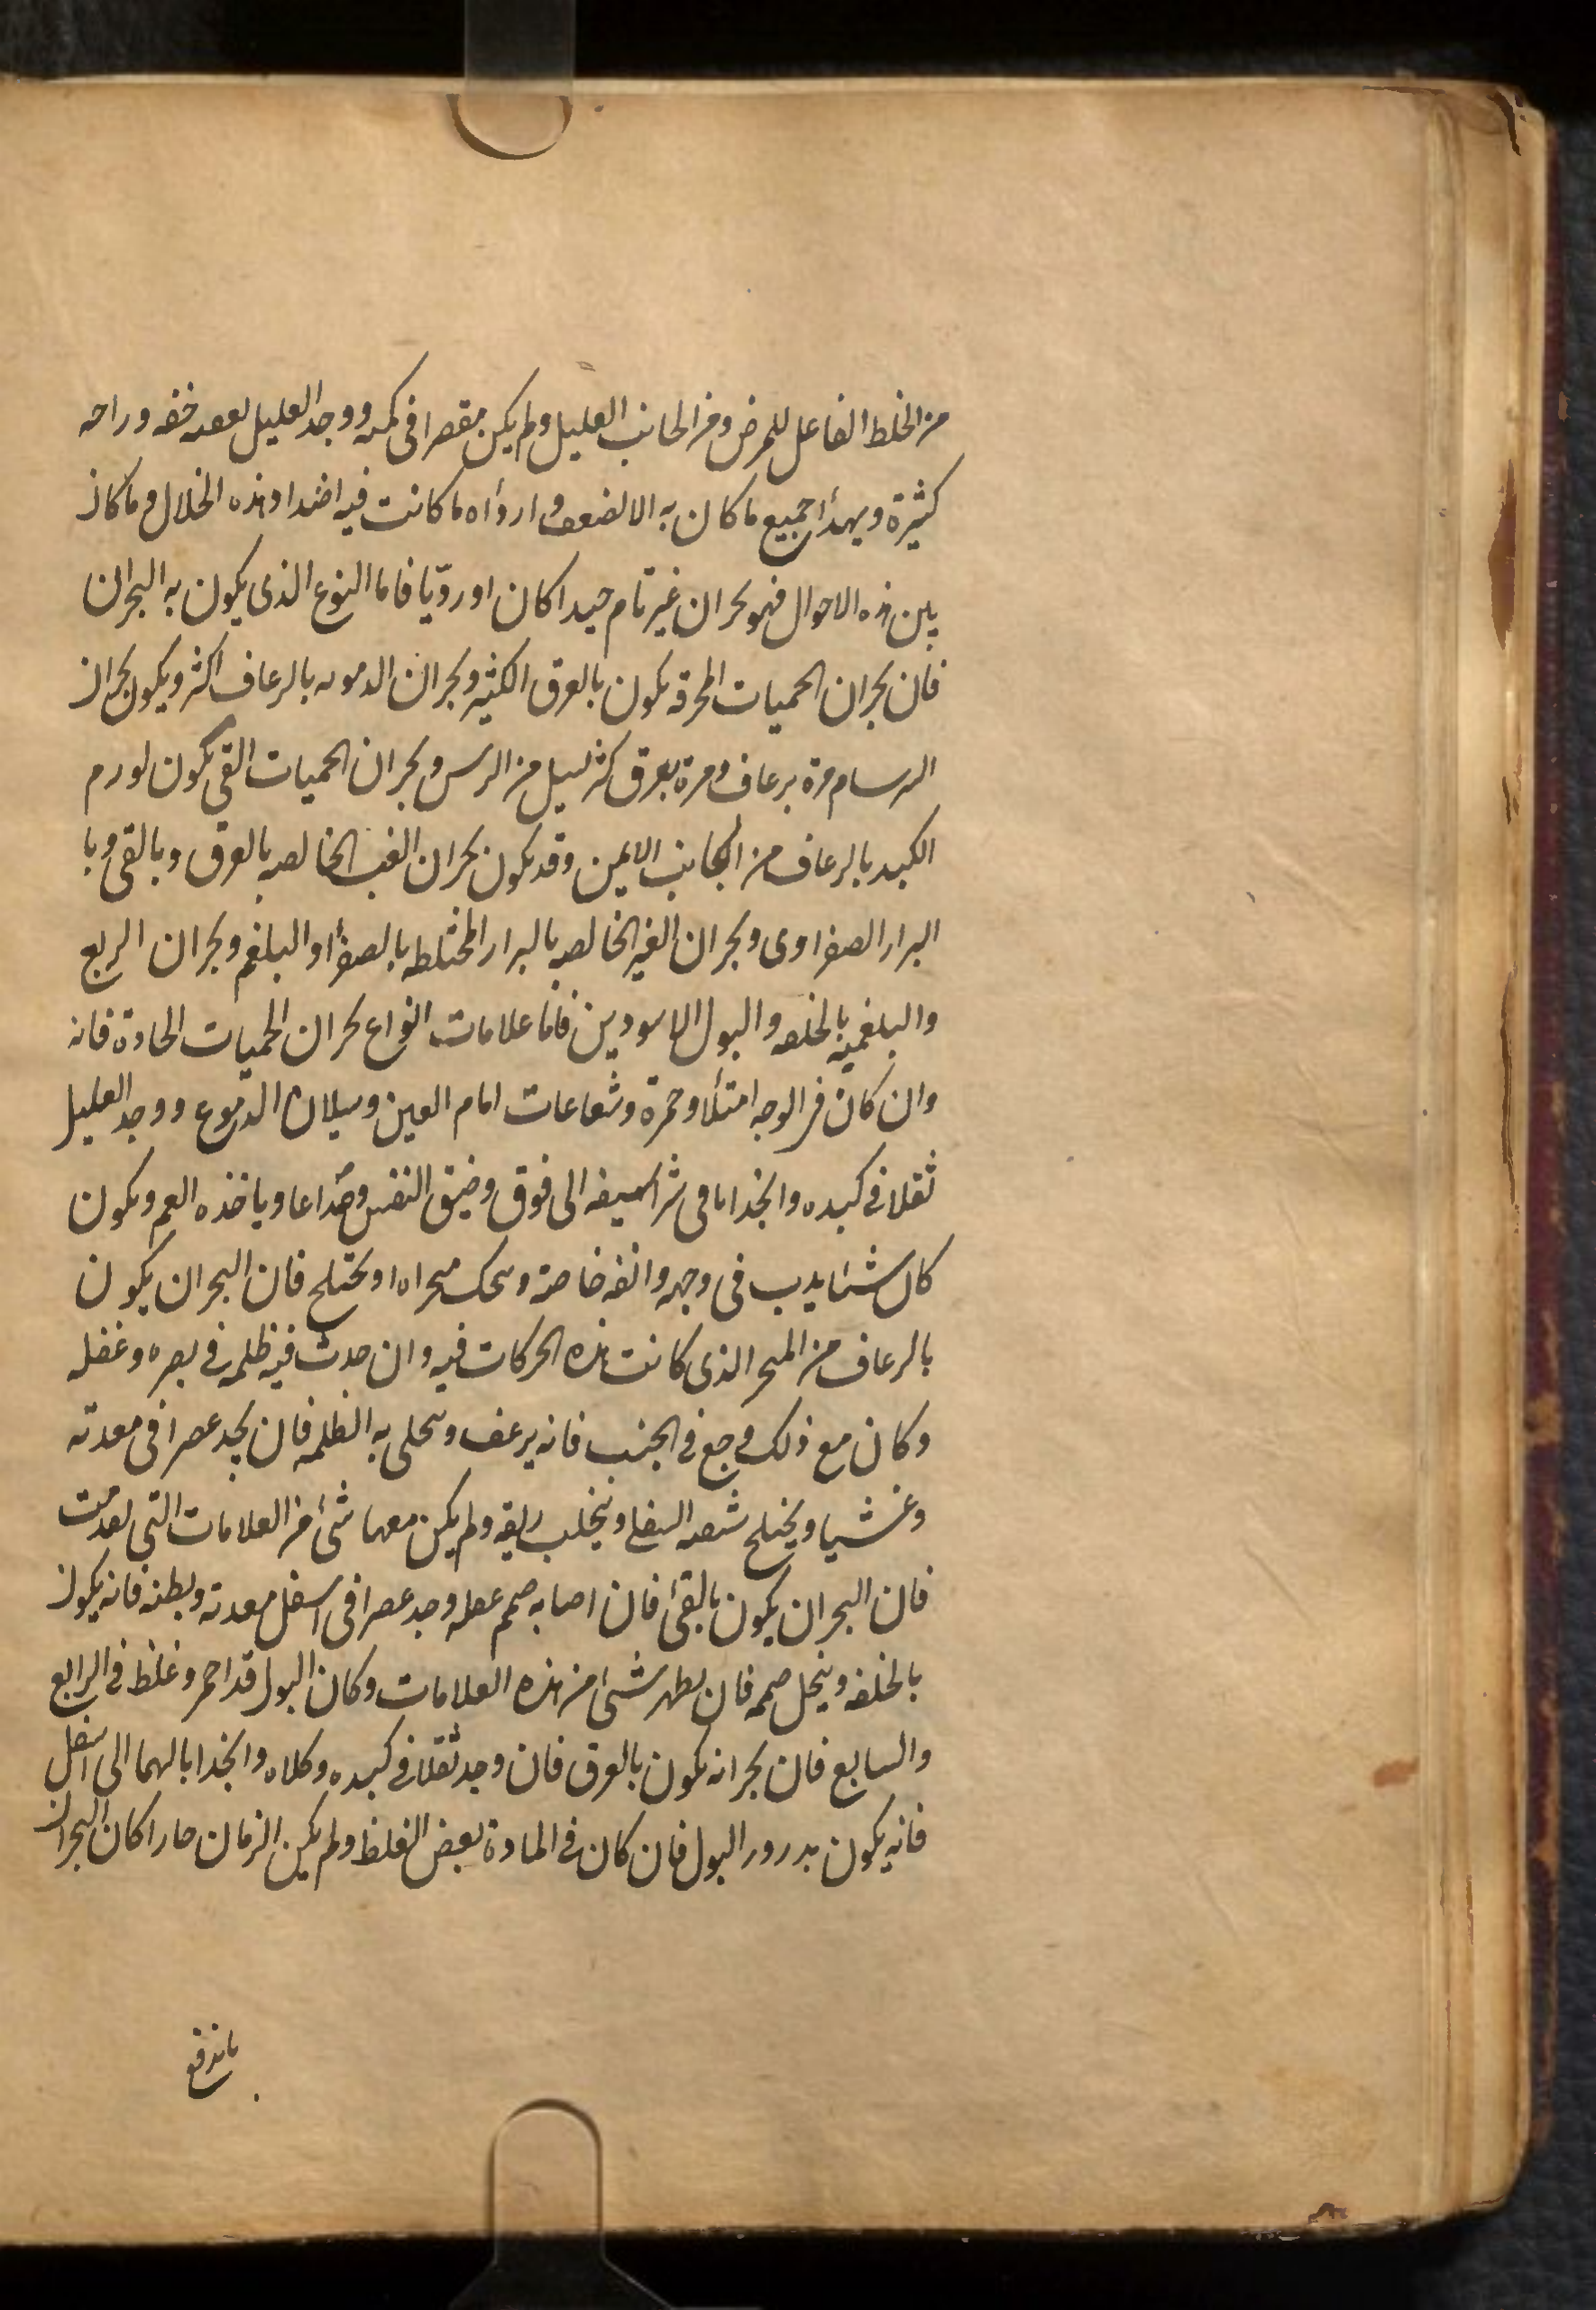 من الخلط الفاعل للمرض ومن الجانب العليل ولم يكن مقصرا فى كمه ووجد العليل لعقبه خفه وراحه
كثيرة ويهدأ جميع ما كان به الا لضعف وارداه ما كانت فيه اضداد هذه الخلال وما كان
بين هذه الاحوال فهو بحران غير تام جيدا كان او رديا فاما النوع الذى يكون به البحران
فان بحران الحميات المحرقه يكون بالعرق الكثير وبحران الدمويه بالرعاف اكثر ويكون بحران
السرسام مرة برعاف ومرة بعرق كثير يسيل من الراس وبحران الحميات التى يكون لورم
الكبد بالرعاف من الجانب الايمن وقد يكون بحران الغب الخالصه بالعرق وبالقى وبا
البراز الصفراوى وبحران الغير الخالصه بالبراز المختلطه بالصفرأ والبلغم وبحران الربع
والبلغميه بالخلفه والبول الاسودين فاما علامات انواع بحران الحميات الحادة فانه
وان كان فى الوجه امتلأ وحمرة وشعاعات امام العين وسيلان الدموع ووجد العليل
ثقلا فى كبده وانجذابا فى شراسيفه الى فوق وضيق النفس وصداعا وياخذه الغم ويكون
كان شئا يدب فى وجهه وانفه خاصة ويحك منخراه او يختلج فان البحران يكون
بالرعاف من المنخر الذى كانت هذه الحركات فيه وان حدث فيه ظلمه فى بصره وغفله
وكان مع ذلك وجع فى الجنب فانه يرعف وينحلى به الظلمه فان يجد عصرا فى معدته
وغشيا ويختلج شفته السفلى ويتحلب ريقه ولم يكن معها شئ من العلامات التى تقدمت
فان البحران يكون بالقئ فان اصابه صمم عقله وجد عصرا فى اسفل معدته وبطنه فانه يكون
بالخلفه وينحل صممه فان يظهر شئ من هذه العلامات وكان البول قد احمر وغلظ فى الرابع
والسابع فان بحرانه يكون بالعرق فان وجد ثقلا فى كبده وكلاه وانجذابا لهما الى اسفل
فانه يكون بدرور البول فان كان فى المادة بعض الغلظ ولم يكن الزمان حارا كان البحران
باندفع